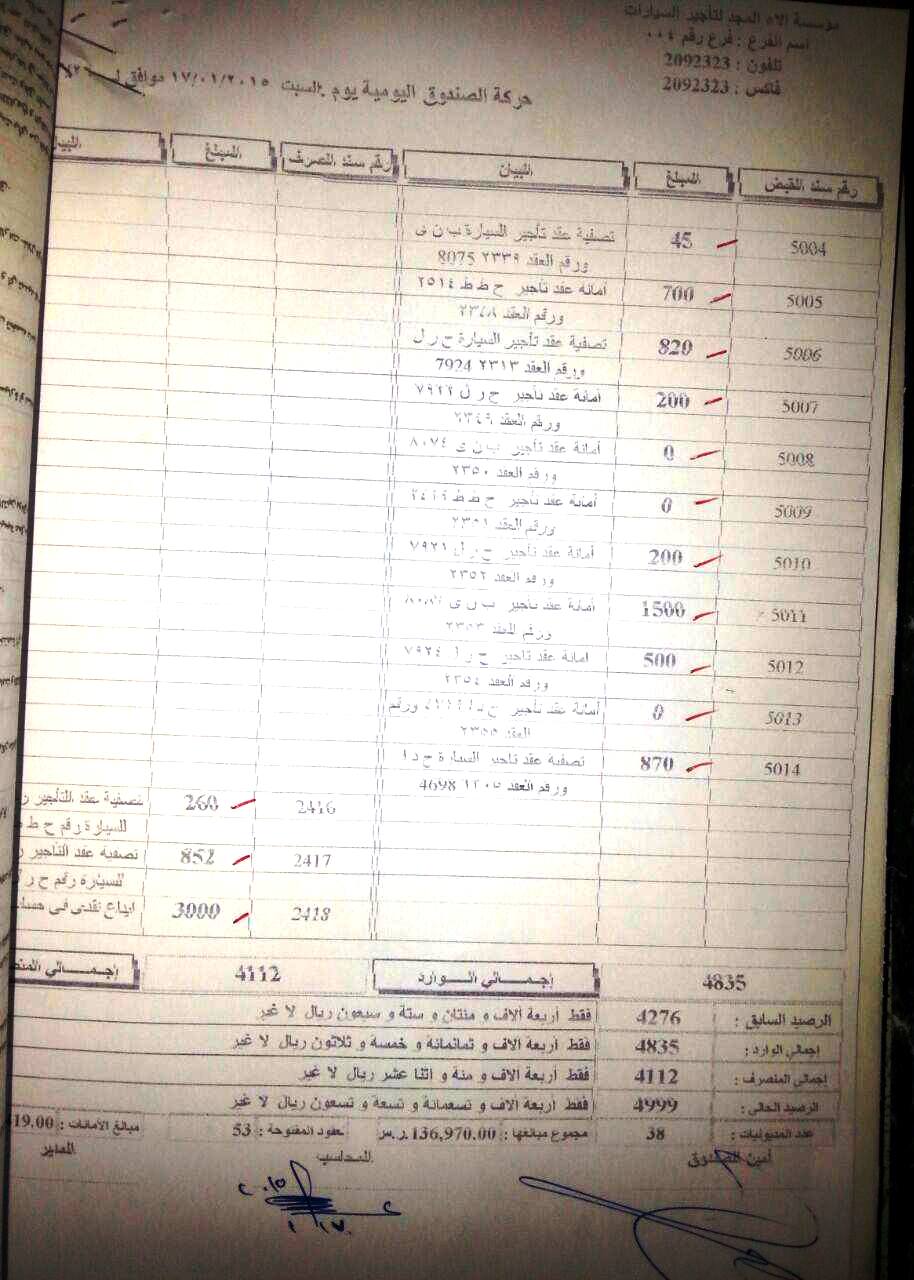 مؤسسة الاء المجد لتأجير السيارات
اسم الفرع : فرع رقم ٠٠٤
تلفون : 2092323
فاكس : 2092323
حركة الصندوق اليومية يوم السبت ١٧/٠١/٢٠١٥ موافق
رقم سند القبض المبلغ البيان رقم سند الصرف المبلغ
5004 45 تصفية عقد تأجير السيارة ب ن ى
ورقم العقد ٢٣٣٩ 8075
5005 700 أمانة عقد تأجير ح ط ط ٢٥١٤
ورقم العقد ٢٣٤٨
5006 820 تصفية عقد تأجير السيارة ح ر ل
ورقم العقد ٢٣١٣ 7924
5007 200 أمانة عقد تأجير ح ر ل ٧٩٢٢
ورقم العقد ٢٣٤٩
5008 0 أمانة عقد تأجير ب ن ى ٨٠٧٤
ورقم العقد ٢٣٥٠
5009 0 أمانة عقد تأجير ح ط ط
ورقم العقد ٢٣٥١
5010 200 أمانة عقد تأجير ح ر ل ٧٩٢١
ورقم العقد ٢٣٥٢
5011 1500 أمانة عقد تأجير ب ن ى
ورقم العقد ٢٣٥٣
5012 500 أمانة عقد تأجير ح ر ل ٧٩٢٤
ورقم العقد ٢٣٥٤
5013 0 أمانة عقد تأجير ورقم
العقد ٢٣٥٥
5014 870 تصفية عقد تأجير السيارة ح د ا
ورقم العقد 4698
2416 260 تصفية عقد التأجير
للسيارة رقم ح ط
2417 852 تصفية عقد التأجير
للسيارة رقم ح ر
2418 3000 ايداع نقدى فى
4835 إجمـــالي الـــوارد 4112 إجمـــالي
الرصيد السابق : 4276 فقط أربعة آلاف و مئتان و ستة و سبعون ريال لا غير
إجمالي الوارد : 4835 فقط أربعة آلاف و ثمانمائة و خمسة و ثلاثون ريال لا غير
إجمالي المنصرف : 4112 فقط أربعة آلاف و مئة و اثنا عشر ريال لا غير
الرصيد الحالى : 4999 فقط أربعة آلاف و تسعمائة و تسعة و تسعون ريال لا غير
عدد المديونيات : 38 مجموع مبالغها : 136,970.00 ر.س عقود المفتوحة : 53 مبالغ الأمانات : 19.00
أمين الصندوق المحاسب المدير